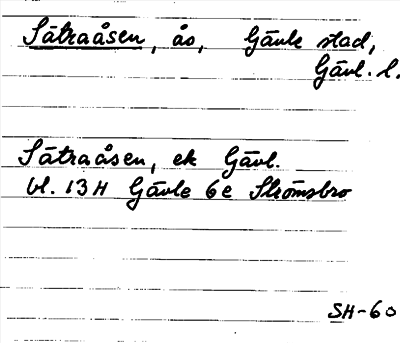 Sätraåsen, ås, Gävle stad,
Gävl. l.
Sätraåsen, ek Gävl.
bl. 13 H Gävle 6e Strömsbro
SH-60